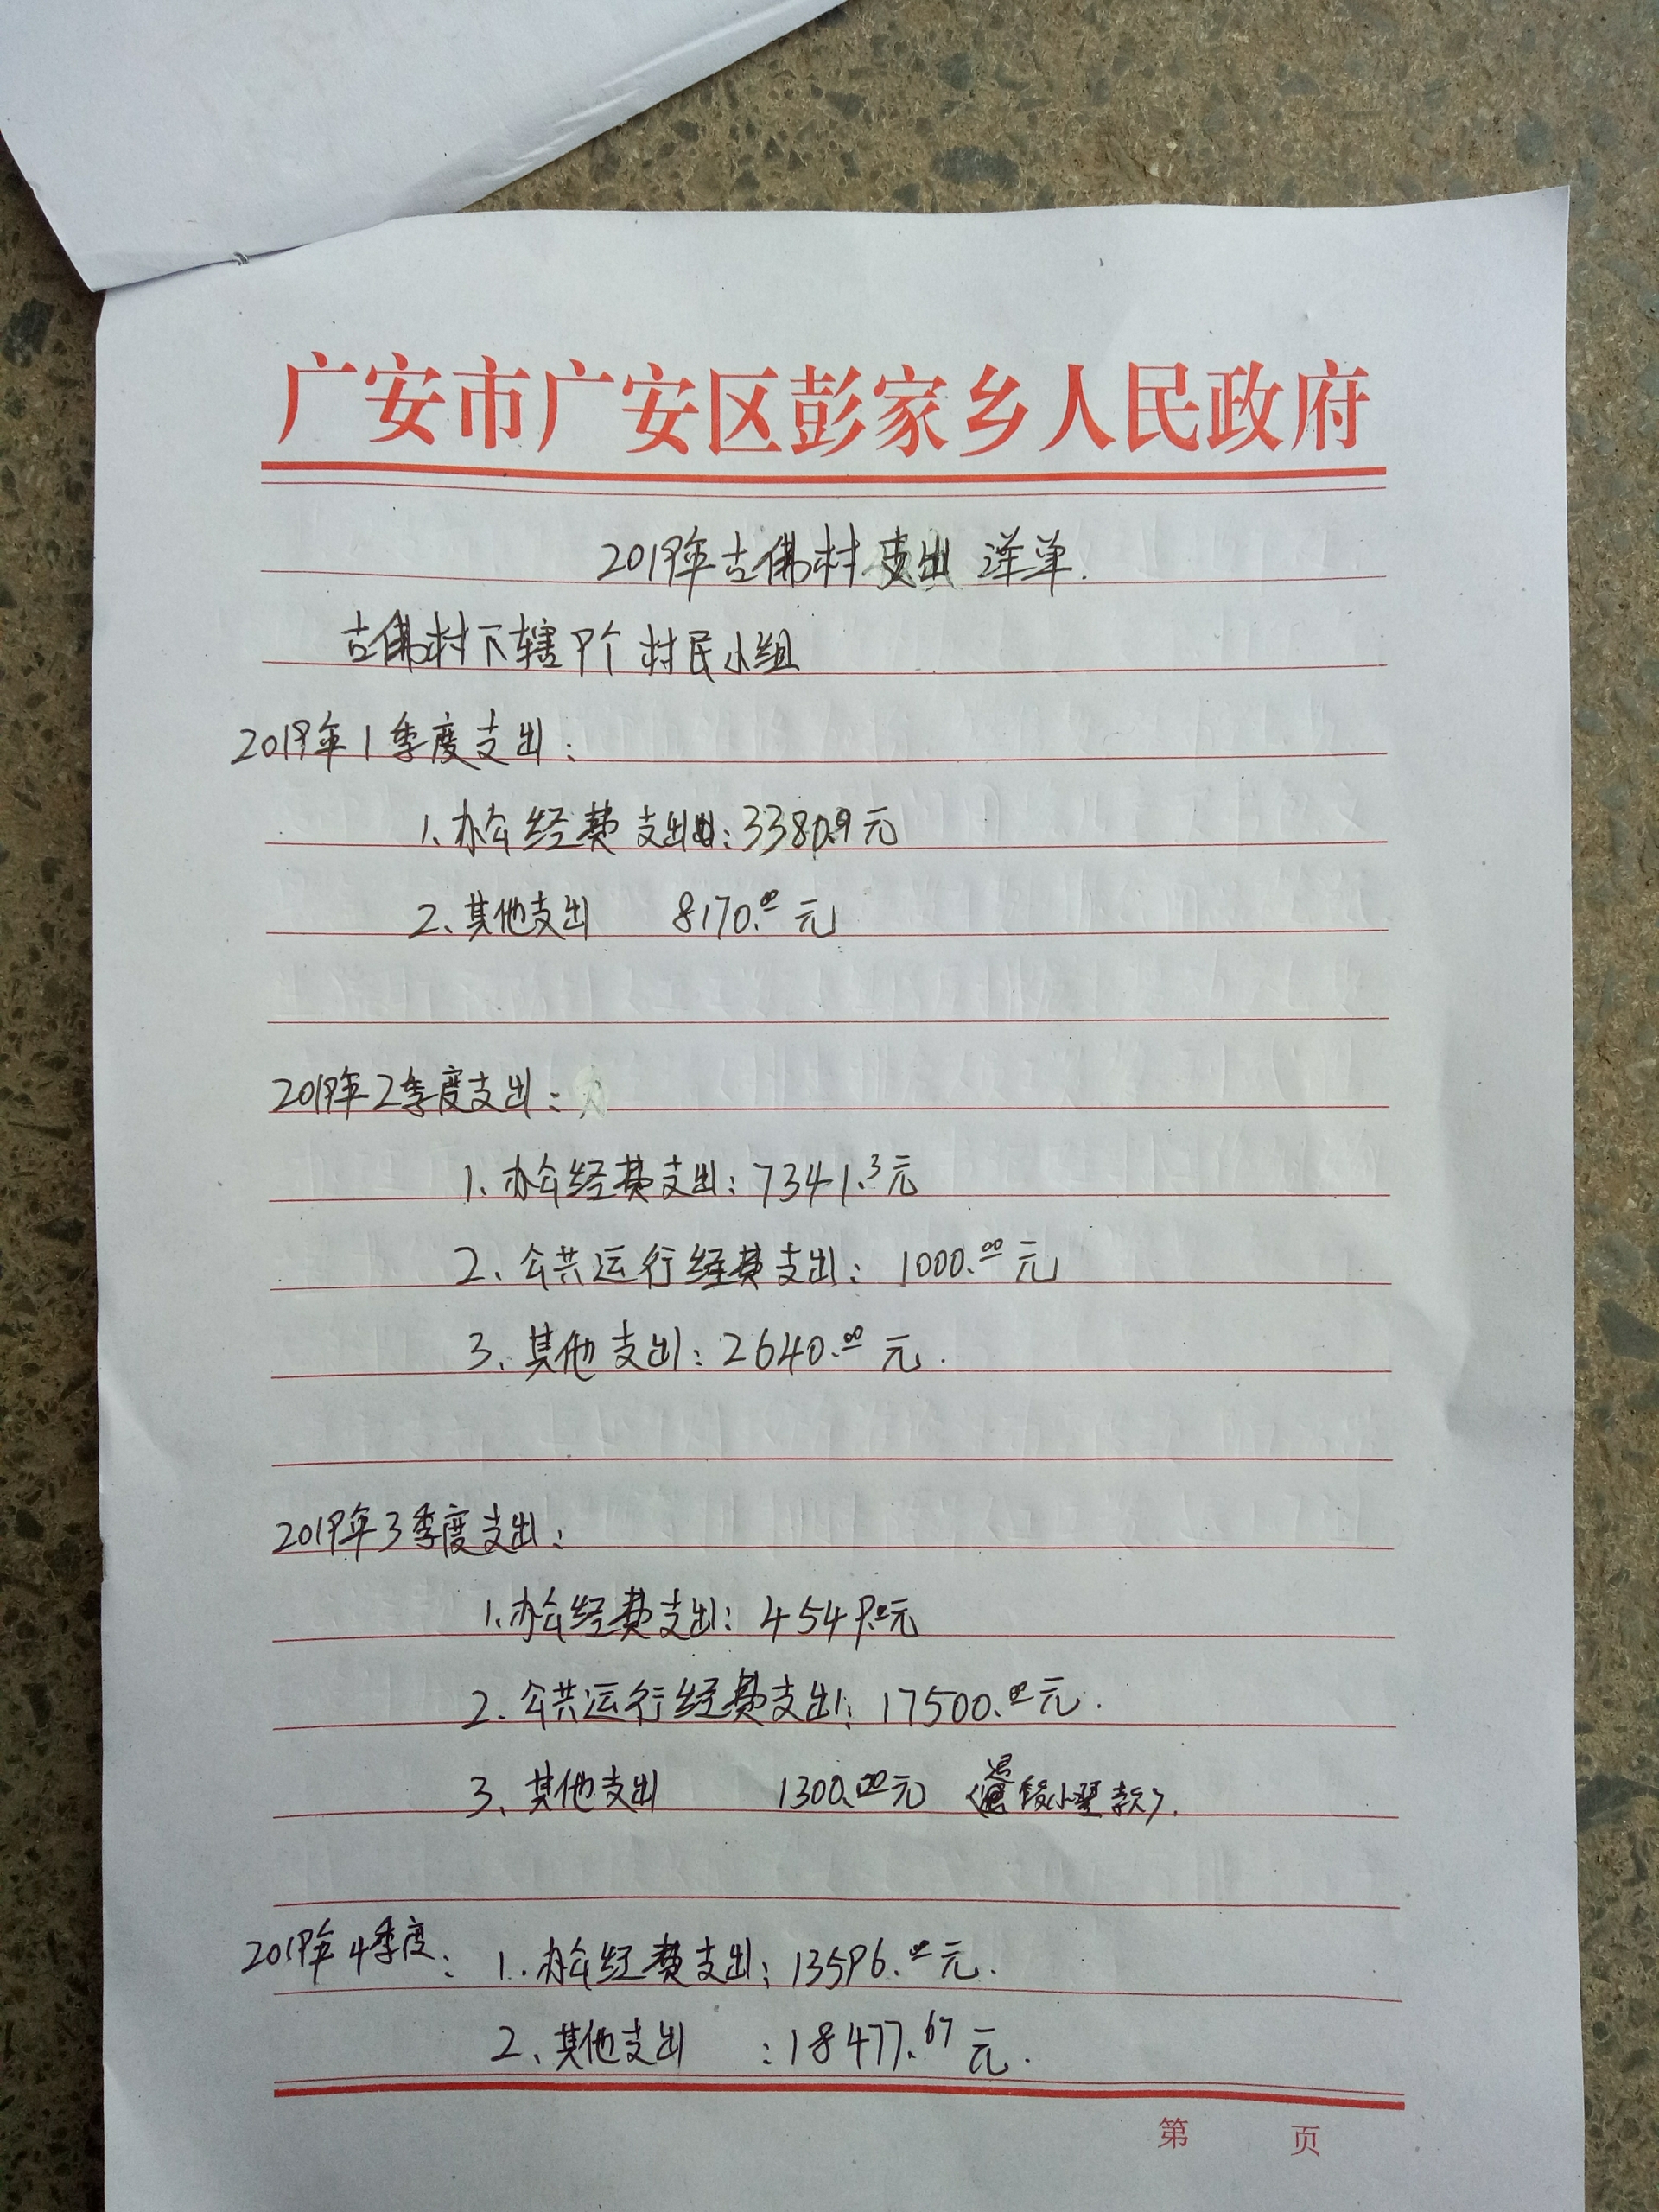 广安市广安区彭家乡人民政府
2019年古佛村支出详单.
古佛村下辖9个村民小组
2019年1季度支出:
1、办公经费支出:3380.9元
2、其他支出 8170.00元
2019年2季度支出:
1、办公经费支出:7341.3元
2、公共运行经费支出:1000.00元
3、其他支出:2640.00元.
2019年3季度支出:
1、办公经费支出:4549.00元
2、公共运行经费支出:17500.00元.
3、其他支出 1300.00元
2019年4季度: 1、办公经费支出:13596.00元.
2、其他支出 :18477.67元.
第 页